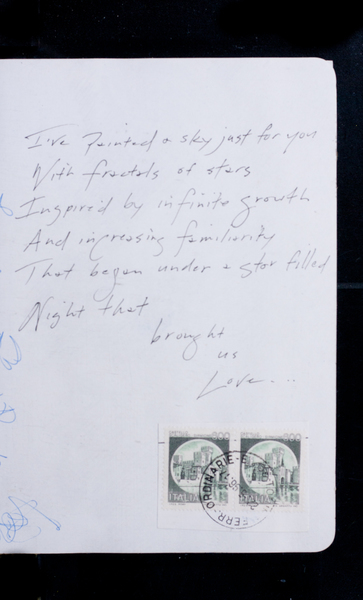 I've painted a sky just for you
With fractals of stars
Inspir'd by infinite growth
And increasing familiarity
That began under a star filled
Night that
brought
us
Love...
ITALIA ITALIA
ORDINARIE
FERR